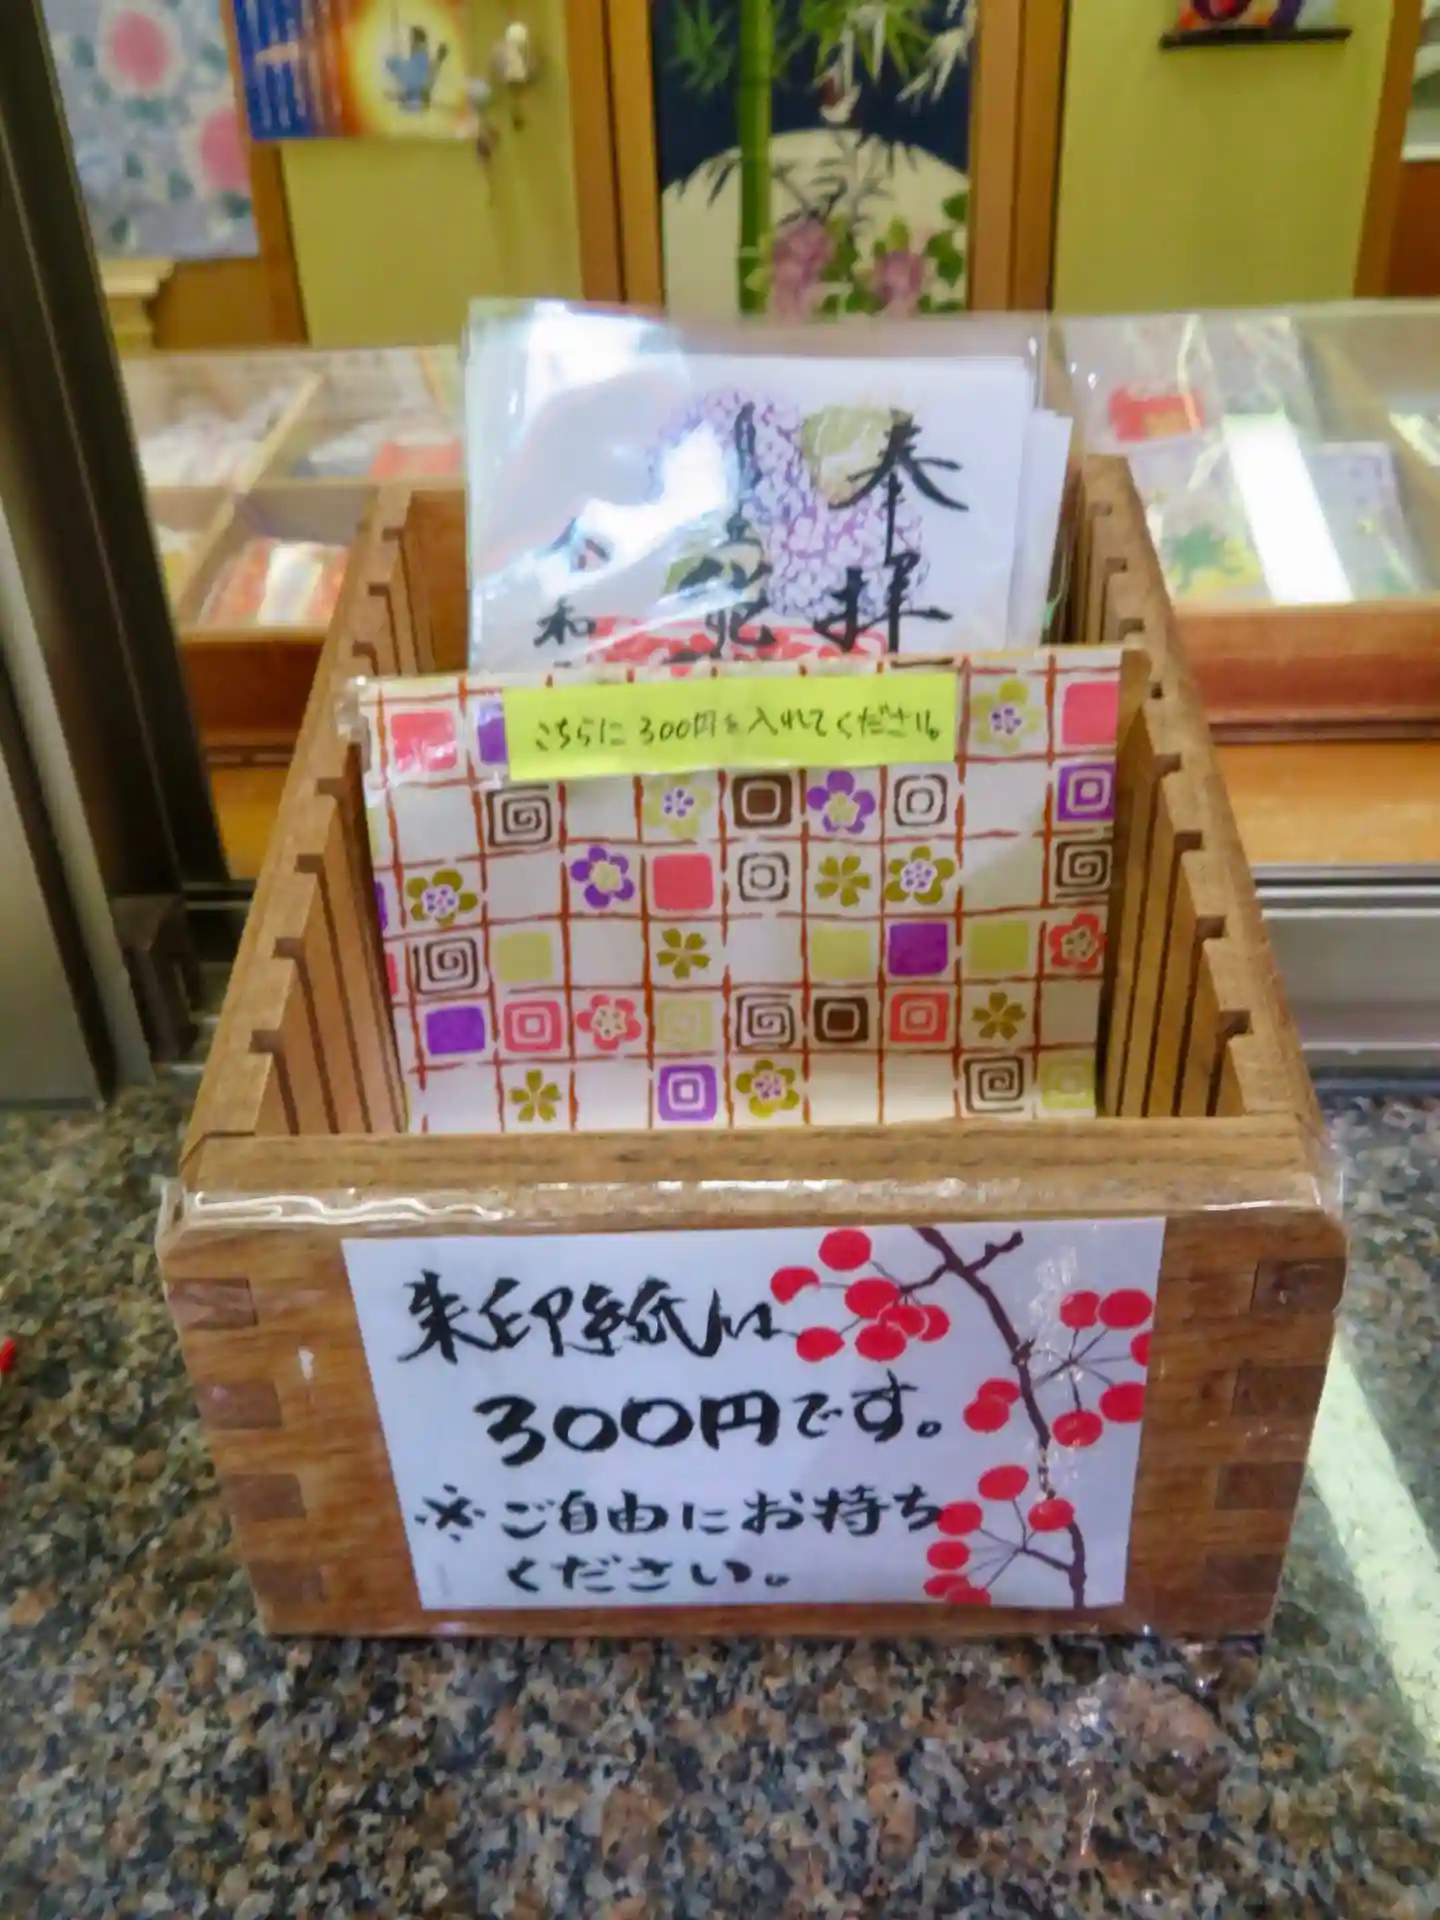 奉拝
花
和
こちらに300円を入れてください。
朱印紙は
300円です。
※ご自由にお持ち
ください。